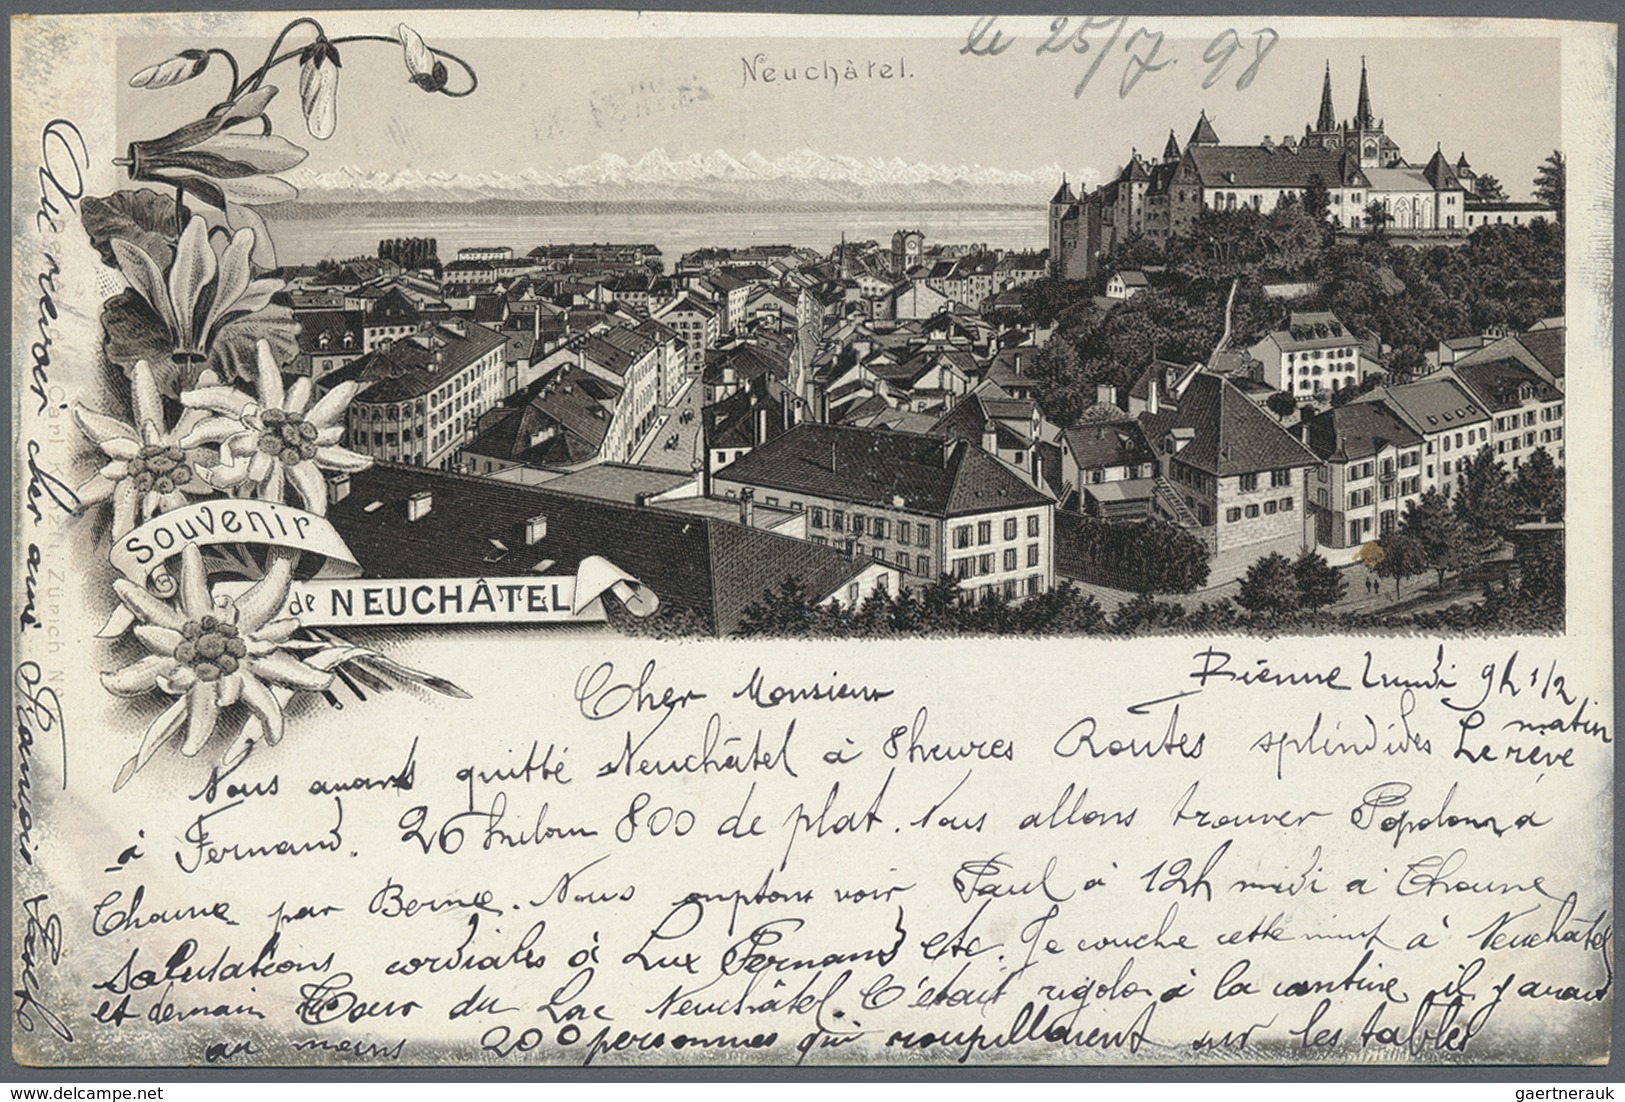 le 25/7. 98
Neuchâtel.
Souvenir
de NEUCHÂTEL
Carl Künzli Zürich No
Bienne Lundi 9h 1/2
matin
Cher Monsieur
Nous avons quitté Neuchâtel à 8 heures Routes splendides Le rêve
à Fernand. 26 800 de plat. Nous allons trouver à
Thoune par Berne. Nous comptons voir Paul à 12h midi à Thoune
Salutations cordiales à Lux Fernand etc. Je couche cette nuit à Neuchâtel
et demain Tour du Lac Neuchâtel. C'était rigolo à la cantine il y avait
au moins 200 personnes qui roupillaient sur les tables
Au revoir cher ami François
gaertnerauk